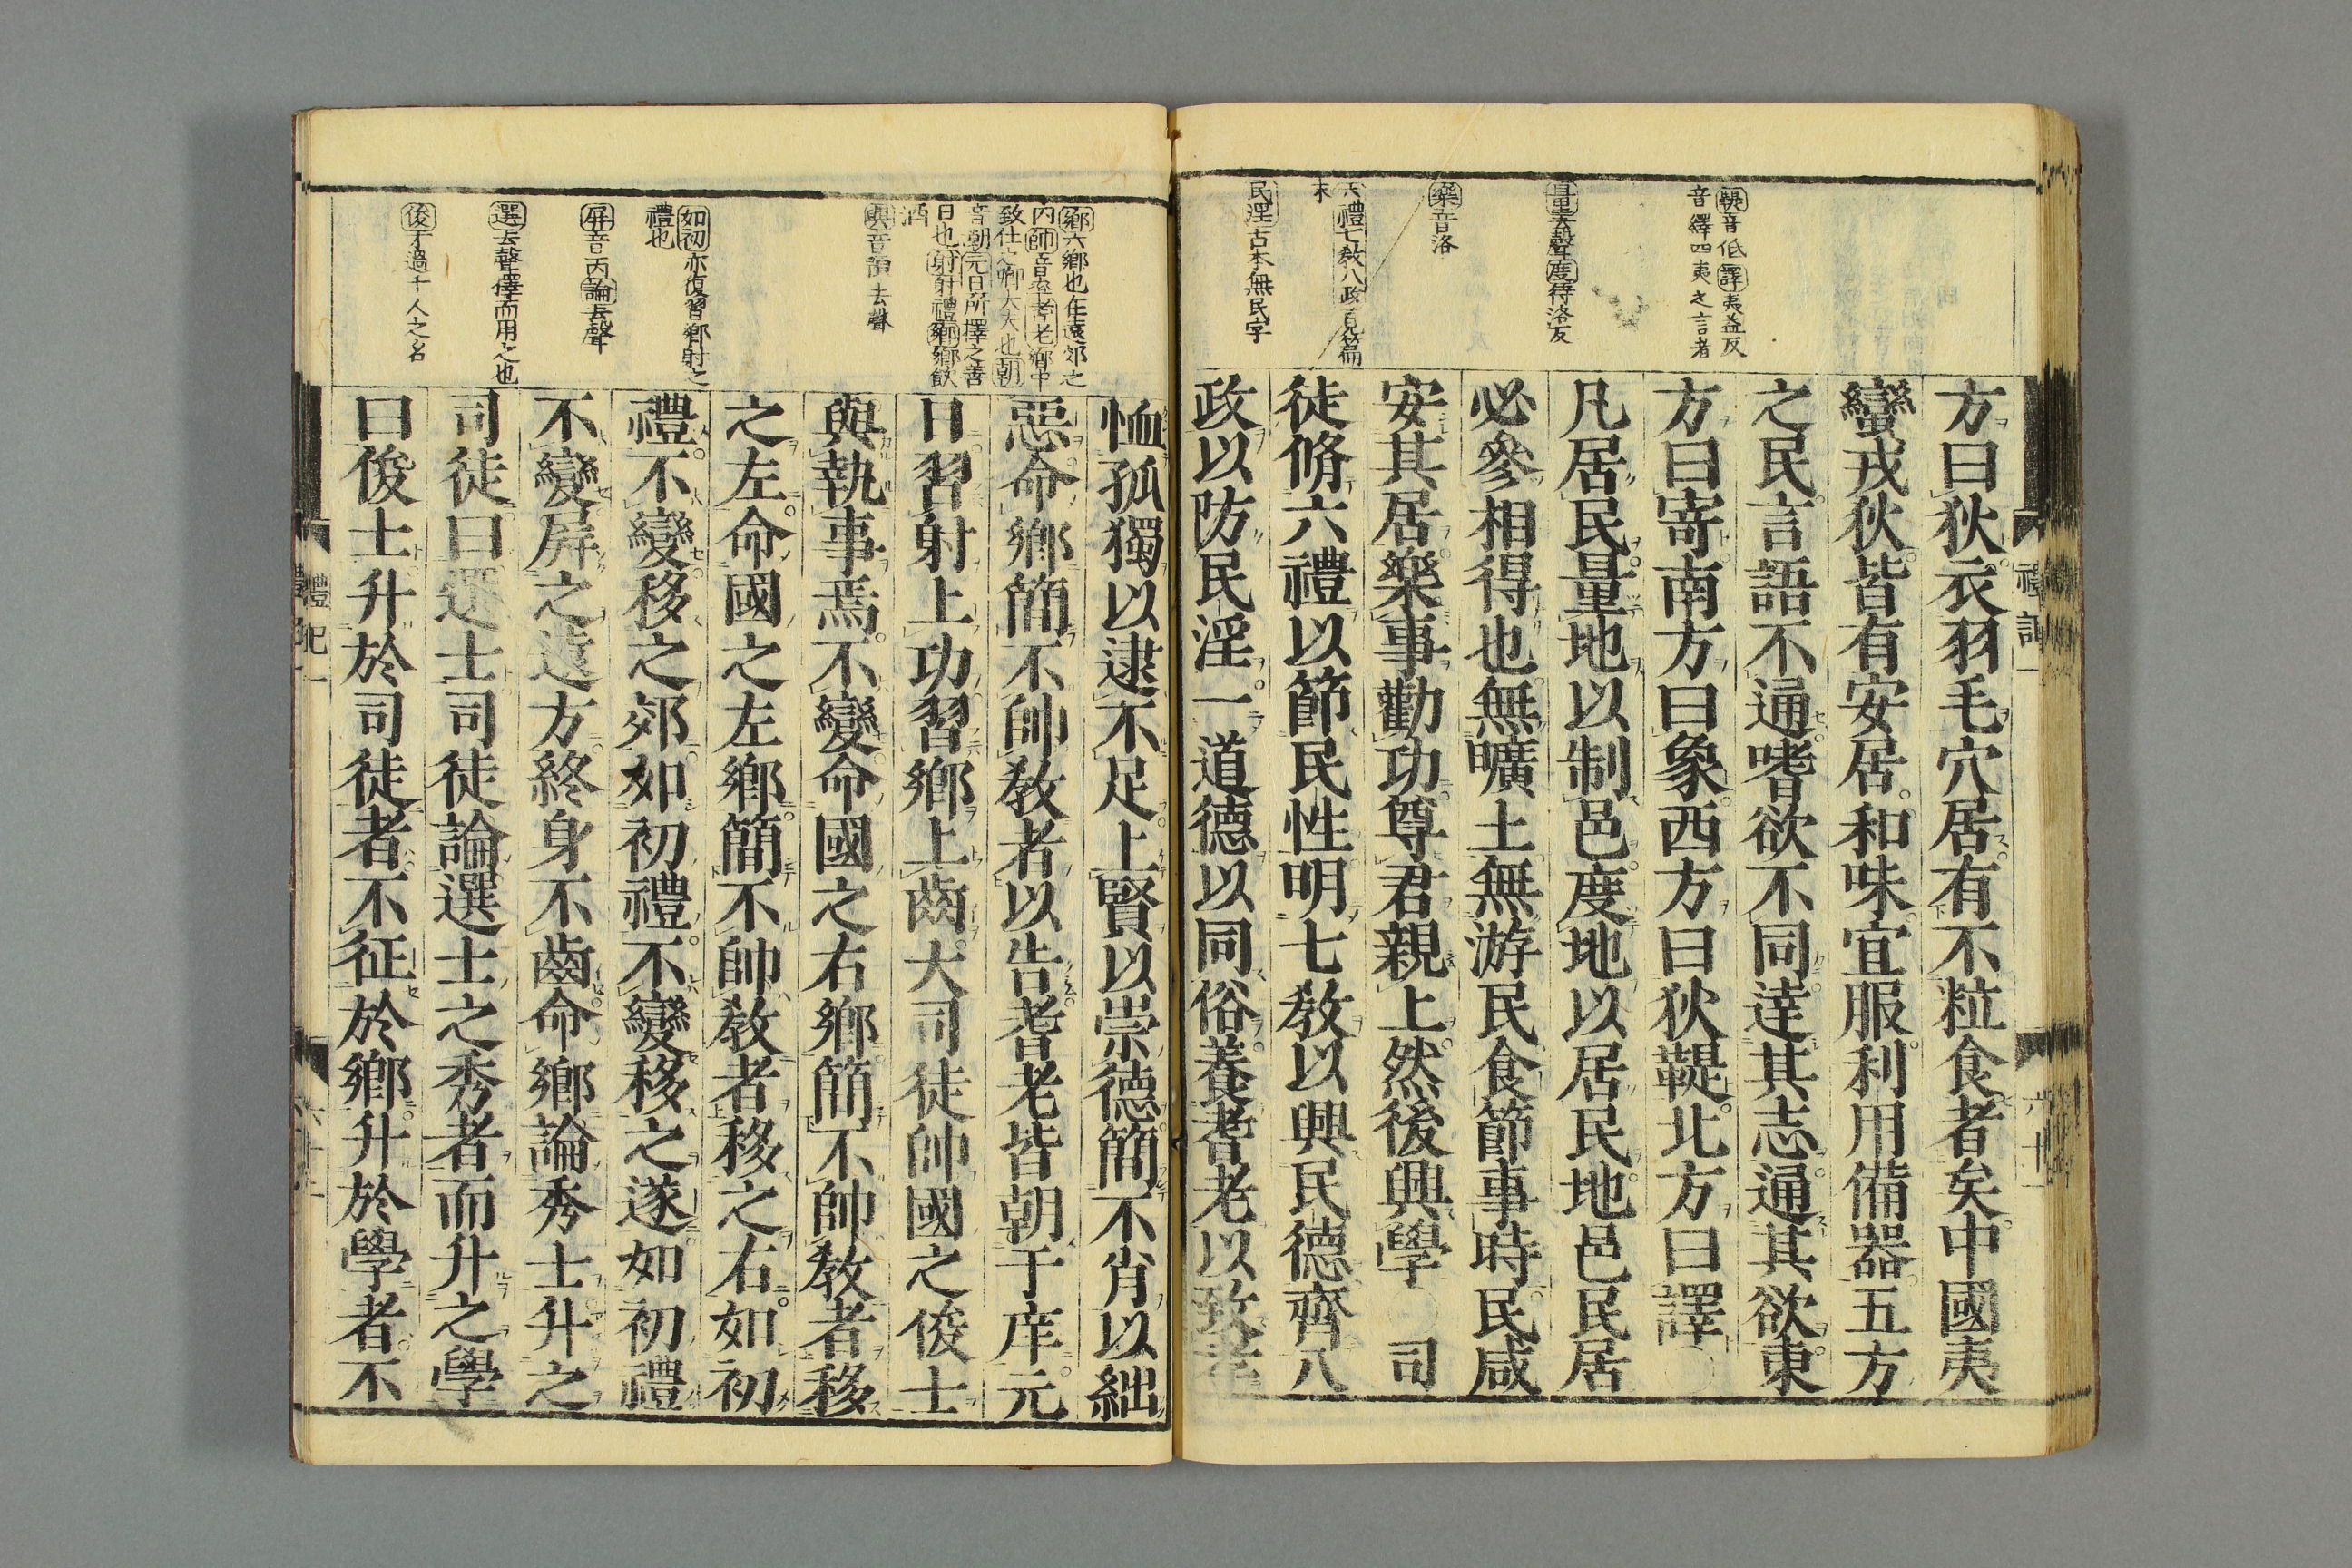 鞮音低譯夷益反
音繹四夷之言者
量去聲度待洛反
樂音洛
六禮七敎八政見篇
末
民淫古本無民字
禮記一
六十一
方曰狄衣羽毛穴居有不粒食者矣中國夷
蠻戎狄皆有安居和味宜服利用備器五方
之民言語不通嗜欲不同達其志通其欲東
方曰寄南方曰象西方曰狄鞮北方曰譯
凡居民量地以制邑度地以居民地邑民居
必參相得也無曠土無游民食節事時民咸
安其居樂事勸功尊君親上然後興學 司
徒脩六禮以節民性明七敎以興民德齊八
政以防民淫一道德以同俗養耆老以致孝
鄉六鄉也在遠郊之
內師音率耆老鄉中
致仕之卿大夫也朝
音朝元日所擇之善
日也射射禮鄉鄉飲
酒
與音預去聲
如初亦復習鄉射之
禮也
屏音丙論去聲
選去聲擇而用之也
俊才過千人之名
恤孤獨以逮不足上賢以崇德簡不肖以絀
惡命鄉簡不帥敎者以告耆老皆朝于庠元
日習射上功習鄉上齒大司徒帥國之俊士
與執事焉不變命國之右鄉簡不帥敎者移
之左命國之左鄉簡不帥敎者移之右如初
禮不變移之郊如初禮不變移之遂如初禮
不變屏之遠方終身不齒命鄉論秀士升之
司徒曰選士司徒論選士之秀者而升之學
曰俊士升於司徒者不征於鄉升於學者不
禮記一